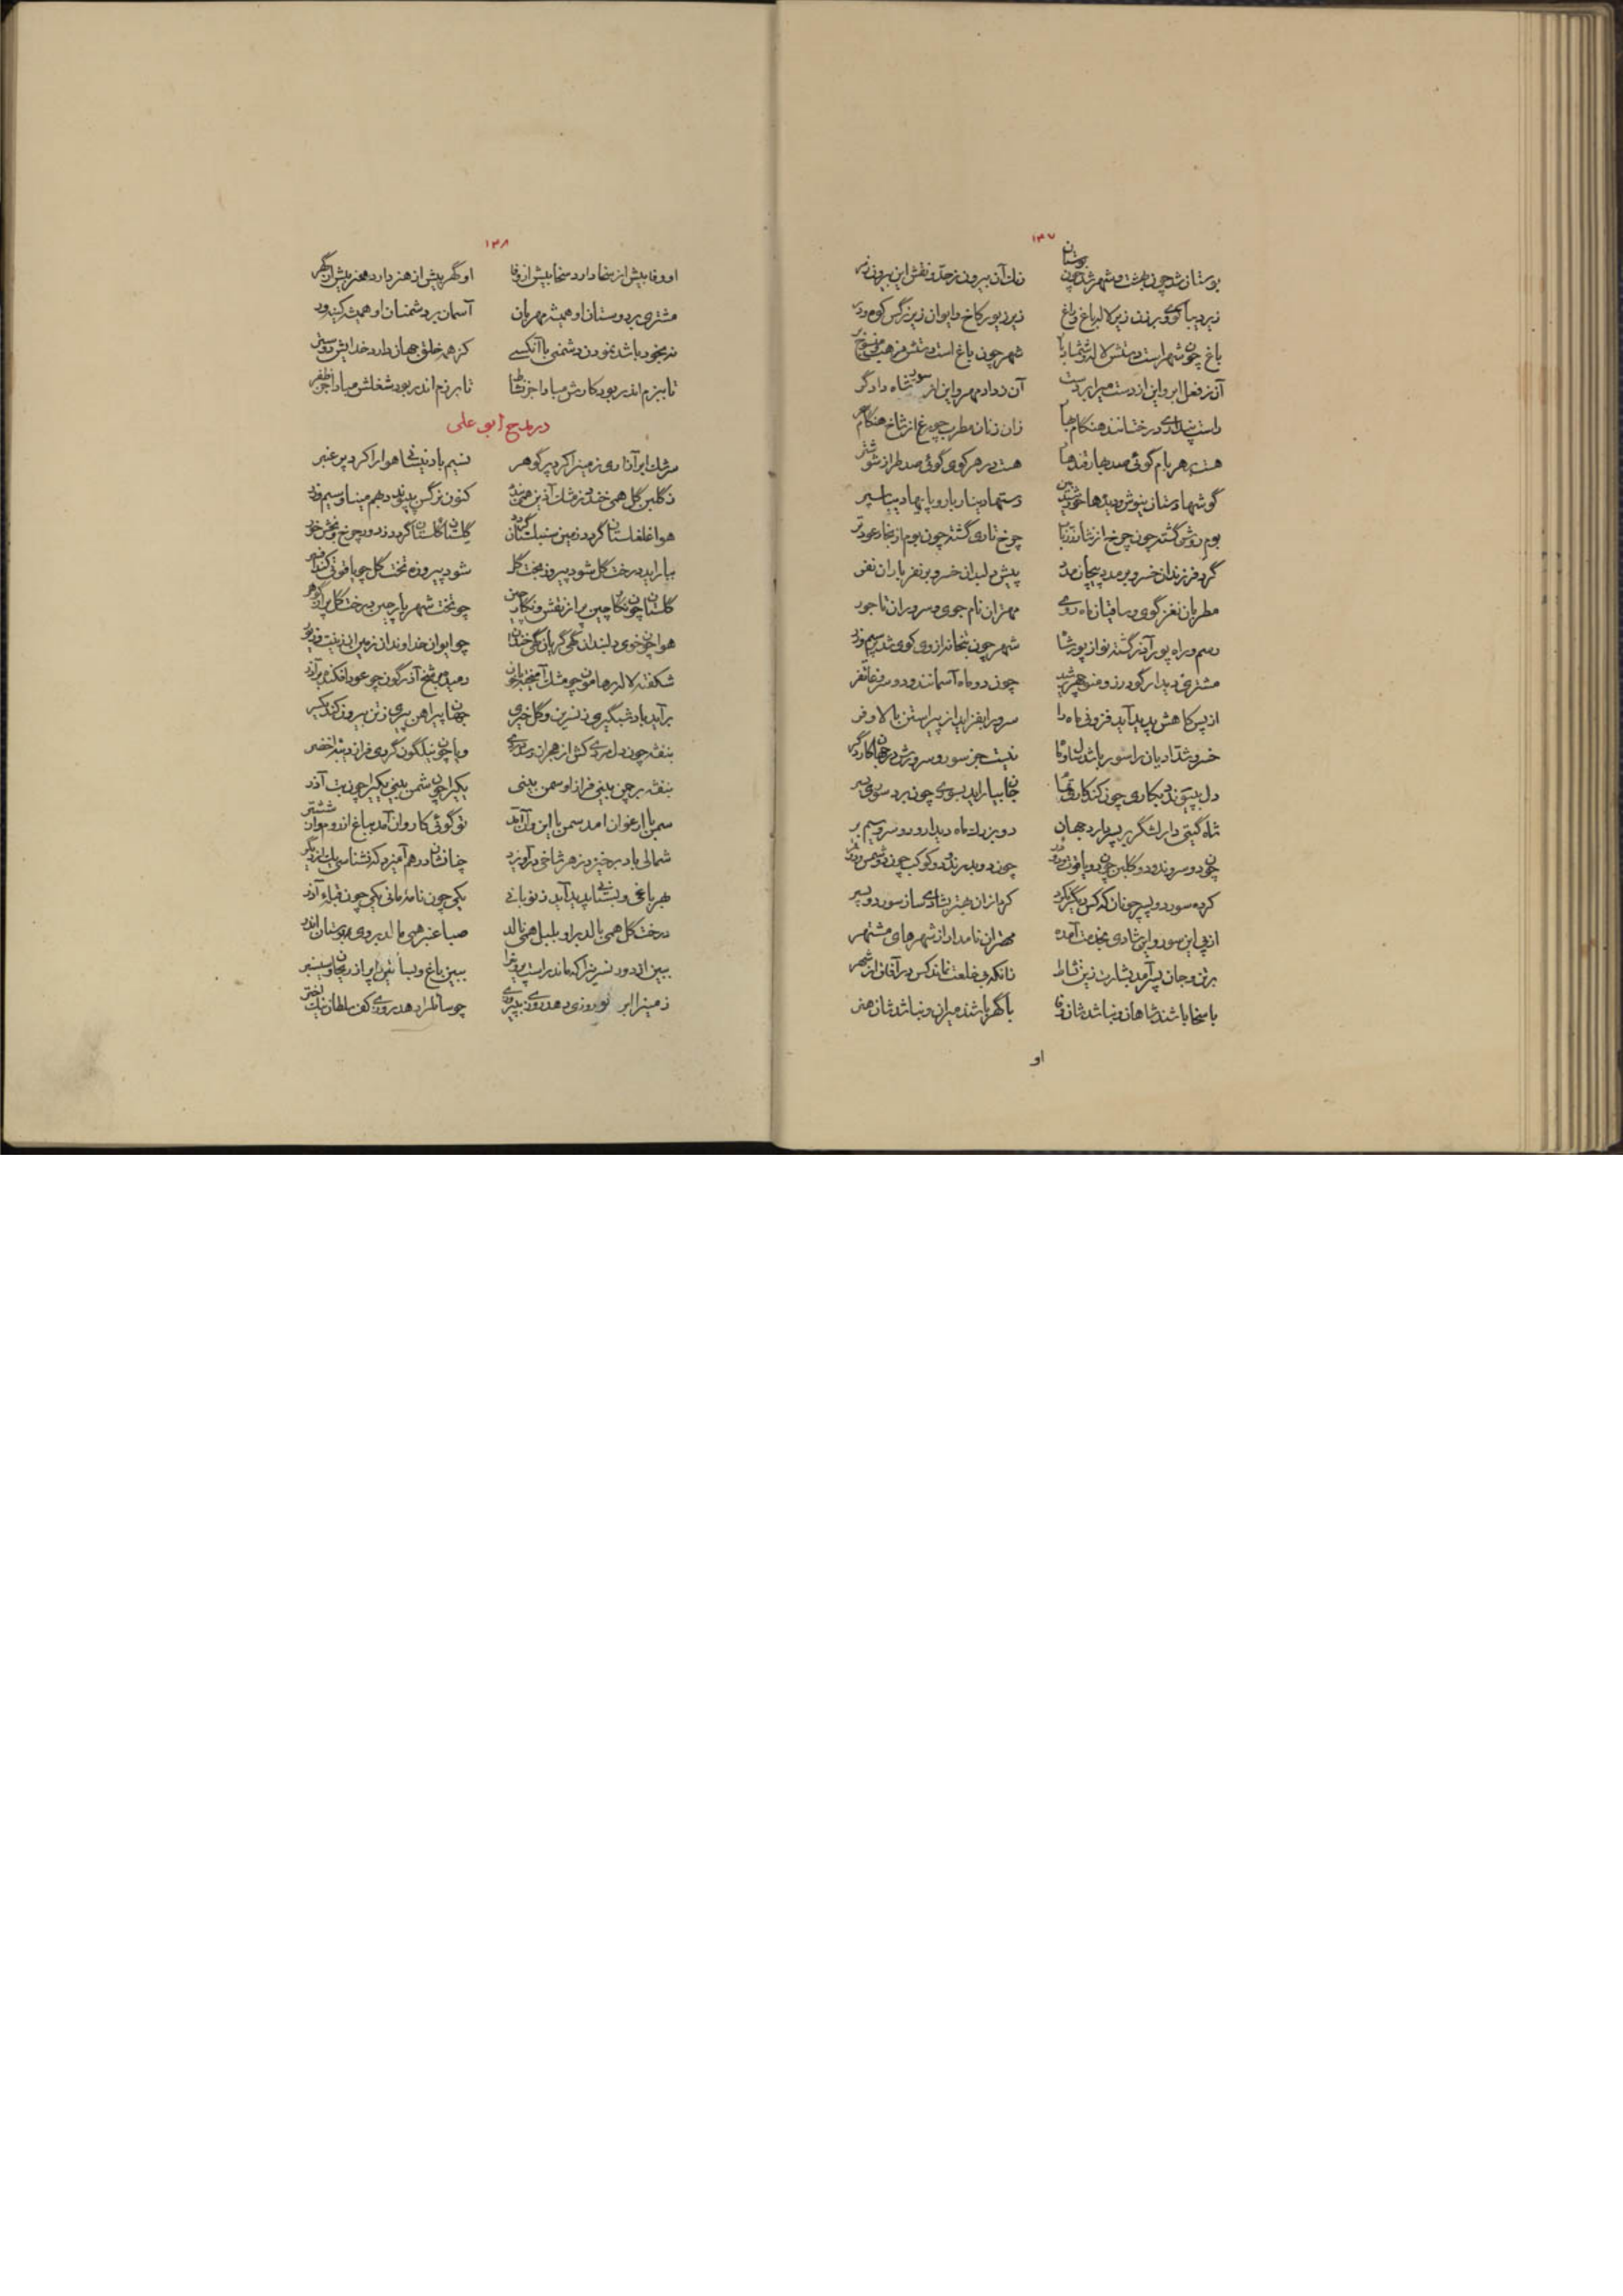 ۱۳۷
بوستان شد چون بهشت و شهر شد چون بوستان رنک آن بیرون ز حد و نقش این بیرون ز مر
زیر دیبا کوی و برزن زیر لاله باغ و راغ زیر زیور کاخ و ایوان زیر نرگس کوه و در
باغ چون شهر است دستش لاله شهر چون باغ است
آن ز فعل ابر و این از دست میرابر دست آن ز داد مهر و این از سور شاه دادگر
راست پنداری درختانند هنگام زان زنان مطرب چو مرغ از شاخ هنگام
هست بر هر بام گوئی صد هست در هر کوی گوئی صد طراز شوشتر
گوشها دستان نیوش و دیدها خورشید بین دستها دینار بار و پایها دیبا سپر
بوم روشن گشته چون چرخ از چرخ تاری گشته چون بوم از بخار عود تر
گرد فرزندان خسرو بر پیش دلبندان خسرو بر نفر باران نفر
مطربان نغز گوی و ساقیان ماه روی مهتران نام جوی و سروران تاجور
رسم و راه پور آذر گشته نو از پور شاه شهر چون بتخانه از وی کوی شد پر سیم و زر
مشتری دیدار گودرز و منوچهر چون دو ماه آسمانند و دو سرو غاتفر
از پس کاهش پدید آید فزونی ماه را سرو را بفزاید از پیراستن بالا و فر
خسرو شدادیان را سور باشد نیست جز سور و سرورش در جهان کار دگر
دل بپیوندد بکاری چون کند کاری تمام جان بیاراید بسوری چون برد سوری بسر
شاه گیتی دار لشگر بر سپار دجهان دو بزرک ماه دیدار و دو سرو سیم بر
چون دو سروند و دو گلبن چون دو یاقوت چون دو بدرند و دو کوکب چون دو شمس
کرده سور دو پسر چونان که کس دیگر نکرد کرم از آن مهتر بشادی ساز سور دو پسر
از پی این سور و این شادی بخدمت آمده مهتران نامدار از شهرهای مشتهر
برتن و جان پسر آمد بشارت زین نشاط تا نکه بی خلعت نماند کس در آفاق از شهر
با سخا باشند شاهان و نباشد شان وفا با گهر باشند میران و نباشد شان هنر
او
۱۳۸
او وفا بیش از سخا دارد سخا بیش از وفا او گهر بیش از هنر دارد هنر بیش از گهر
مشتری بر دوستان او همیشه مهربان آسمان بر دشمنان او همیشه کینه ور
نه بخود باشد نمودن دشمنی با آنکسی کز همه خلق جهان دارد خدایش دوستتر
تا ببزم اندر بود کارش مبادا جز نشاط تا برزم اندر بود شغلش مبادا جز ظفر
در مدح ابو علی
سرشک ابر آذاری زمین را کرد پر گوهر نسیم باد نیسانی هوا را کرد پر عنبر
ز گلبن گل همی خندد کنون نرگس بپیوندد بهم مینا و سیم و زر
هوا غلغلستان گردد زمین سنبلستان گردد گلستان گلستان گردد ز دور چرخ
بیاراید درخت گل شود پیروز بخت گل شود پیروزه تخت گل چو یاقوتی کند افسر
گلستان چون نگار چین پر از نقش و نگار چین چو تخت شهریار چین درخت گل پر از گوهر
هوا چون خوی دلبندان گهی گریان گهی خندان چو ایوان خداوندان زمین از زینت و زیور
شکفته لاله بر هامون چو مشک آمیخته با خون دمیده بر شخ آذرگون چو عود افکنده بر آذر
برآید باد شبگیری ز نسرین و گل خیری جهان پیراهن پیری ز تن بیرون کند یکسر
بنفشه چون دل مردی کش از هجران رسد دردی و یا چون نیلگون گردی فراز دیبه اخضر
بنفشه بر چمن بینی فراز او سمن بینی یکی را چون شمن بینی یکی را چون بت آذر
سمن با ارغوان آمد سمن با این و آن آمد تو گوئی کاروان آمد بباغ اندر ز شوشتر
شمالی باد برخیزد ز هر شاخی درآویزد چنانشان در هم آمیزد که نشناسی یک از دیگر
بهر باغی و بستانی پدید آید ز نو بانی یکی چون نامهٔ مانی یکی چون قبلهٔ آذر
درخت گل همی بالد بر او بلبل همی نالد صبا عنبر همی مالد بروی بوستان اندر
ببین از دور نسرین را که ماند راست پروین را ببین باغ و بساتین را پر از ریحان و سیسنبر
زمین را ابر نوروزی دهد روزی بپیروزی چو سائل را دهد روزی کف سلطان نیک اختر